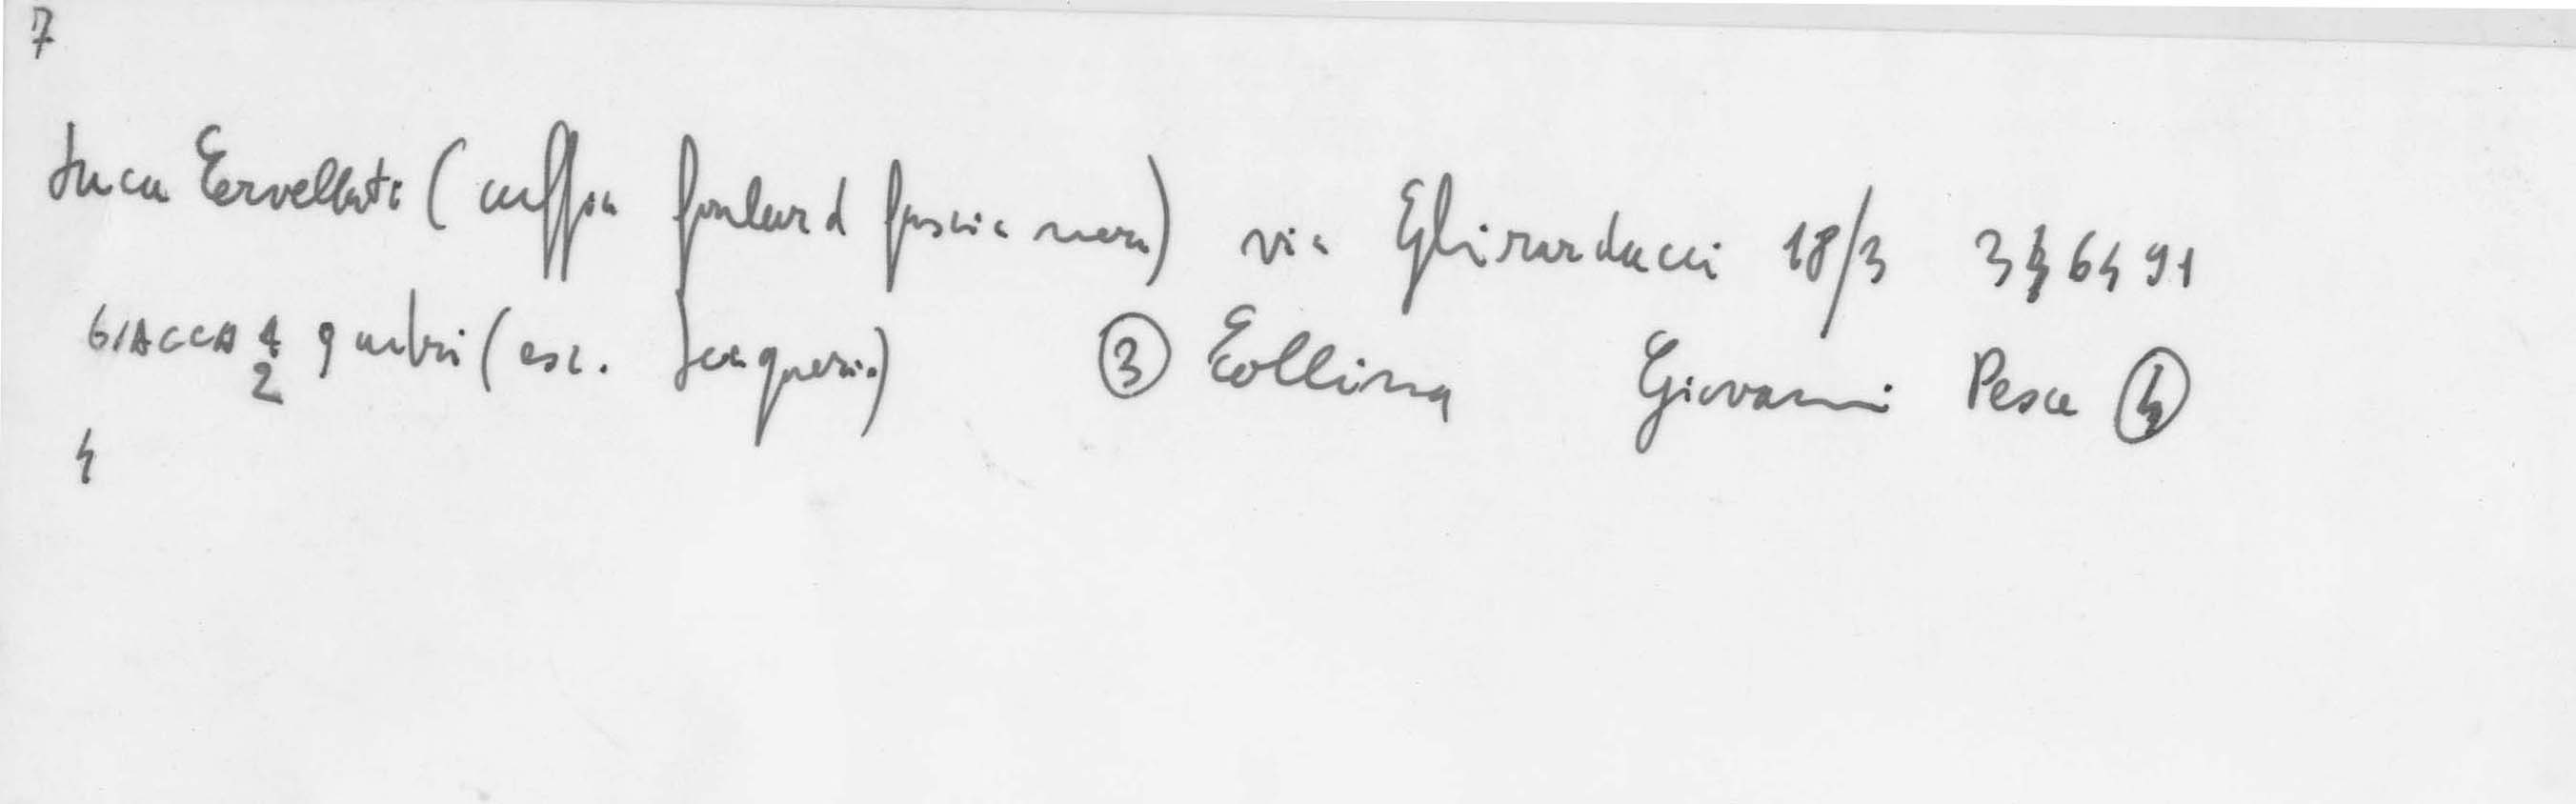 7
Luca Cervellati (cuffia foulard fascia nera) via Ghirarducci 18/3 346491
GIACCA 1 quadri (esc. ③ Collina Giovanni Pesce ④
2
4